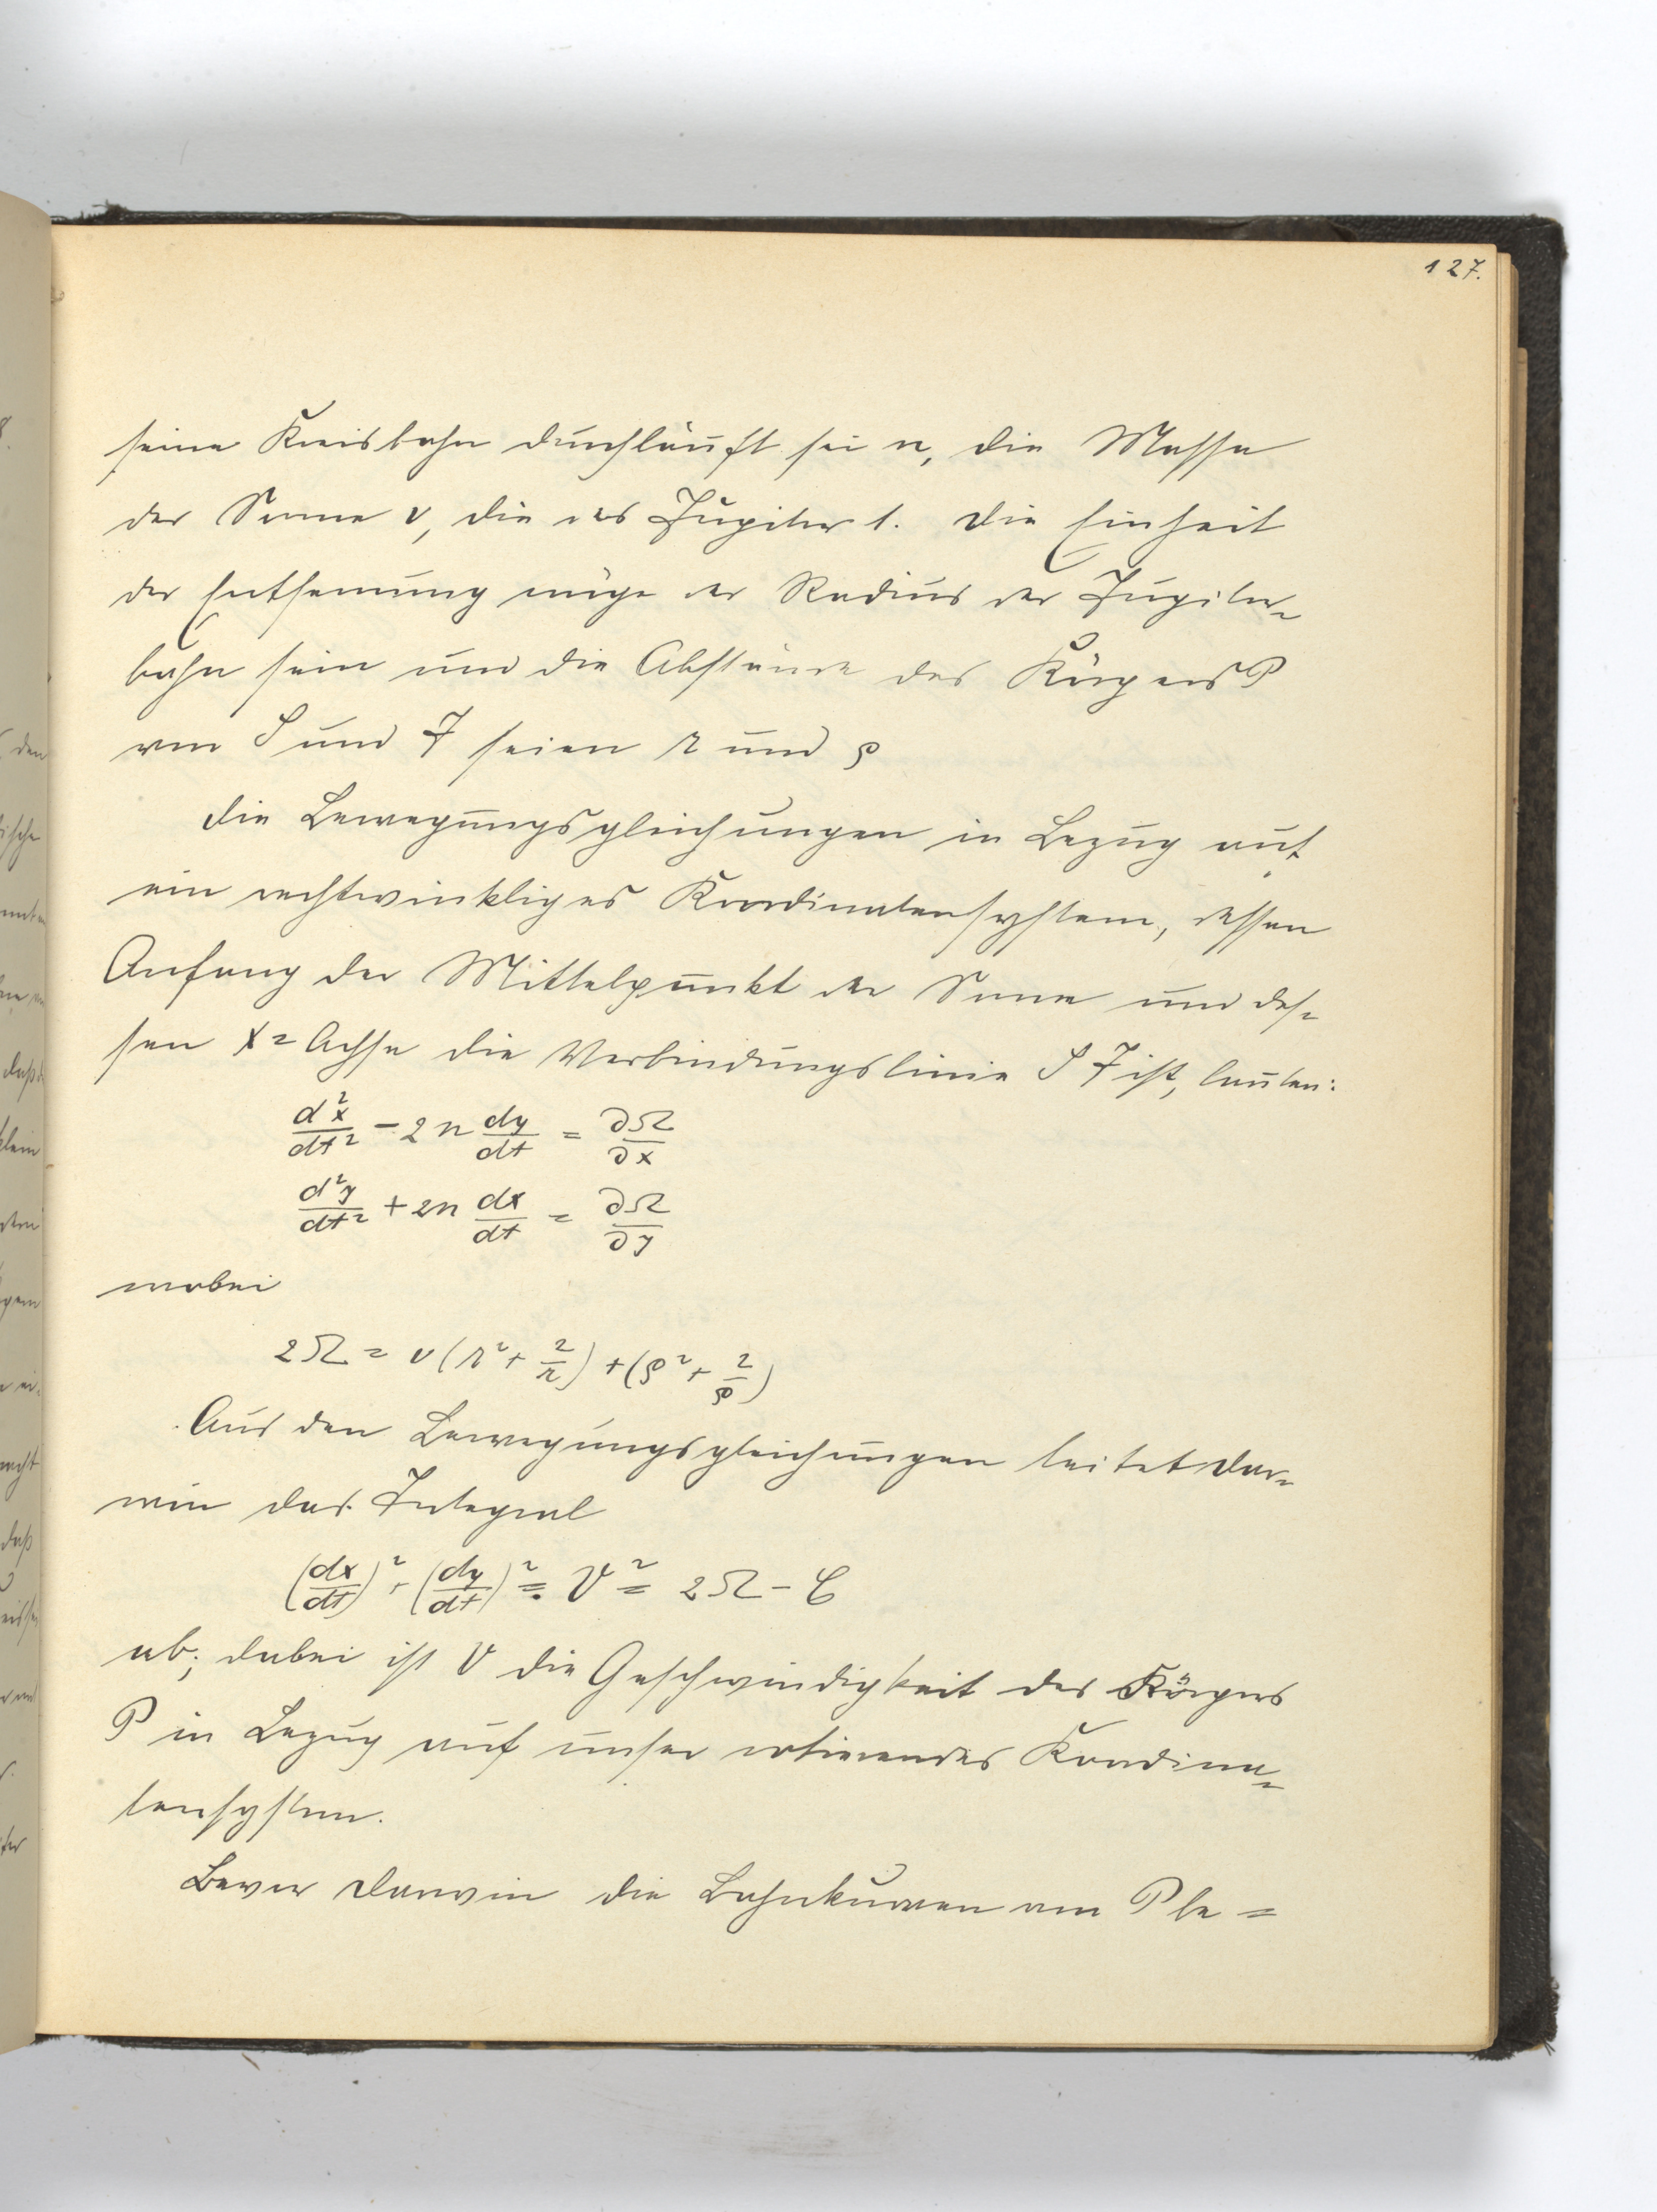 127.
seine Kreisbahn durchläuft sei n, die Masse
der Sonne ν, die des Jupiter 1. Die Einheit
der Entfernung möge der Radius der Jupiter-
bahn sein und die Abstände des Körpers P
von S und J seien r und ρ
Die Bewegungsgleichungen in Bezug auf
ein rechtwinkliges Koordinatensystem, dessen
Anfang der Mittelpunkt der Sonne und des-
sen x-Achse die Verbindungslinie S J ist, lauten:
d²x/dt² - 2n dy/dt = ∂Ω/∂x
d²y/dt² + 2n dx/dt = ∂Ω/∂y
wobei
2Ω = ν(r² + 2/r) + (ρ² + 2/ρ)
Aus den Bewegungsgleichungen leitet Dar-
win das Integral
(dx/dt)² + (dy/dt)² = V² = 2Ω - C
ab; dabei ist V die Geschwindigkeit des Körpers
P in Bezug auf unser rotierendes Koordina-
tensystem.
Bevor Darwin die Bahnkurven von P be-